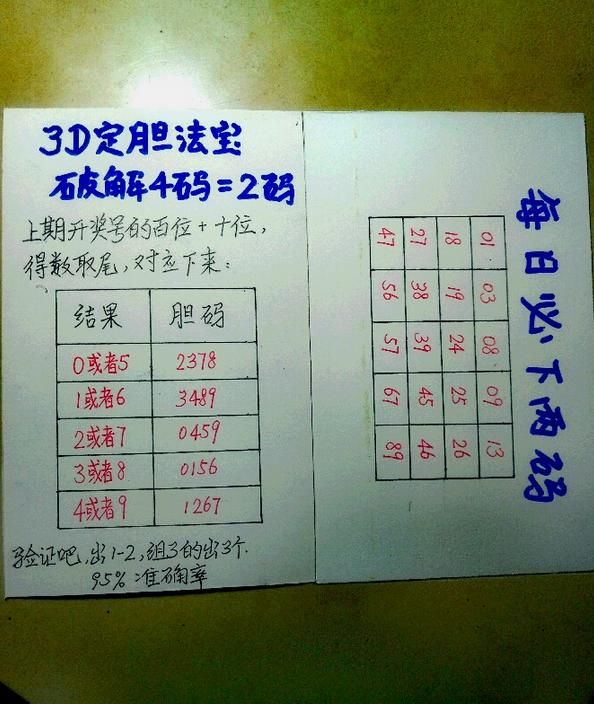 3D定胆法宝
破解4码=2码
上期开奖号的百位+十位,
得数取尾,对应下来:
结果 胆码
0或者5 2378
1或者6 3489
2或者7 0459
3或者8 0156
4或者9 1267
验证吧,出1-2,组3的出3个.
95%准确率
每日必下两码
01 03 08 09 13
18 19 24 25 26
27 38 39 45 46
47 56 57 67 89